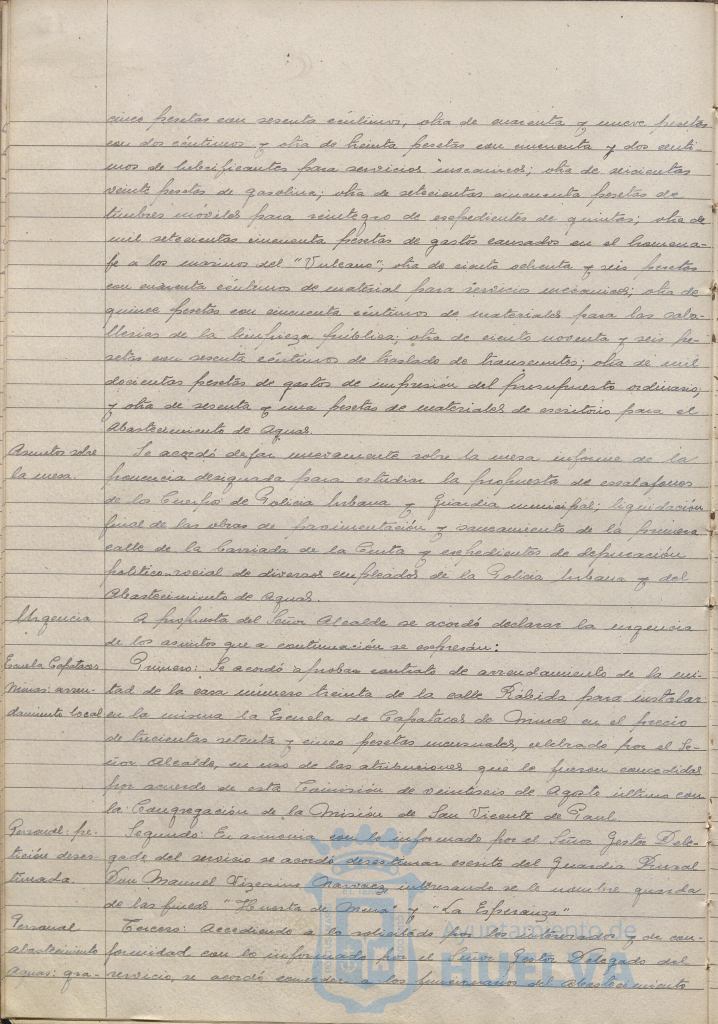 cinco pesetas con sesenta céntimos, otra de cuarenta y nueve pesetas
con dos céntimos y otra de treinta pesetas con cincuenta y dos cénti-
mos de lubrificantes para servicios mecánicos; otra de seiscientas
veinte pesetas de gasolina; otra de setecientas cincuenta pesetas de
timbres móviles para reintegro de expedientes de quintas; otra de
mil setecientas cincuenta pesetas de gastos causados en el homena-
je a los marinos del "Vulcano"; otra de ciento ochenta y seis pesetas
con cuarenta céntimos de material para servicios mecánicos; otra de
quince pesetas con cincuenta céntimos de materiales para las caba-
llerías de la limpieza pública; otra de ciento noventa y seis pe-
setas con sesenta céntimos de traslado de transeuntes; otra de mil
doscientas pesetas de gastos de impresión del Presupuesto ordinario;
y otra de sesenta y una pesetas de materiales de escritorio para el
Abastecimiento de Aguas.
Asuntos sobre
la mesa.
Se acordó dejar nuevamente sobre la mesa informe de la
ponencia designada para estudiar la propuesta de escalafones
de los Cuerpos de Policía Urbana y Guardia municipal; liquidación
final de las obras de pavimentación y saneamiento de la primera
calle de la barriada de la Cinta y expedientes de depuración
político-social de diversos empleados de la Policía Urbana y del
Abastecimiento de Aguas.
Urgencia
A propuesta del Señor Alcalde se acordó declarar la urgencia
de los asuntos que a continuación se expresan:
Escuela Capataces
Minas: arren-
damiento local
Primero: Se acordó aprobar contrato de arrendamiento de la mi-
tad de la casa número treinta de la calle Rábida para instalar
en la misma la Escuela de Capataces de Minas en el precio
de trecientas setenta y cinco pesetas mensuales, celebrado por el Se-
ñor Alcalde, en uso de las atribuciones que le fueron concedidas
por acuerdo de esta Comisión de veintiseis de Agosto último con
la Congregación de la Misión de San Vicente de Paul.
Personal: pe-
tición deses-
timada.
Segundo: En armonía con lo informado por el Señor Gestor Dele-
gado del servicio se acordó desestimar escrito del Guardia Rural
Don Manuel Vizcaino Narvaez interesando se le nombre guarda
de las fincas "Huerta de Mena" y "La Esperanza"
Personal
abastecimiento
Aguas: gra-
Tercero: Accediendo a lo solicitado por los interesados y de con-
formidad con lo informado por el Señor Gestor Delegado del
servicio, se acordó conceder a los funcionarios del Abastecimiento
Ayuntamiento de
HUELVA